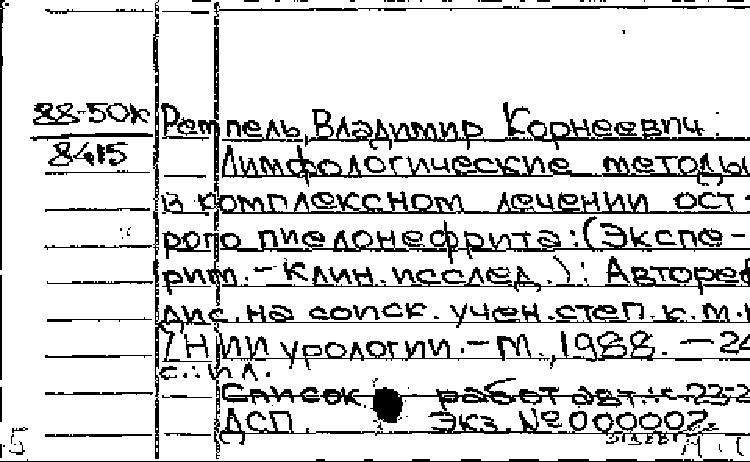 88-50к
8415
Ремпель, Владимир Корнеевич.
Лимфологические методы
в комплексном лечении ост-
рого пиелонефрита: (Экспе-
рим.-клин. исслед.): Автореф
дис. на соиск. учен. степ. к.м.н
НИИ урологии. - М., 1988. - 24
с.: ил.
Список работ авт.: с. 23-2
ДСП. Экз. № 000002.